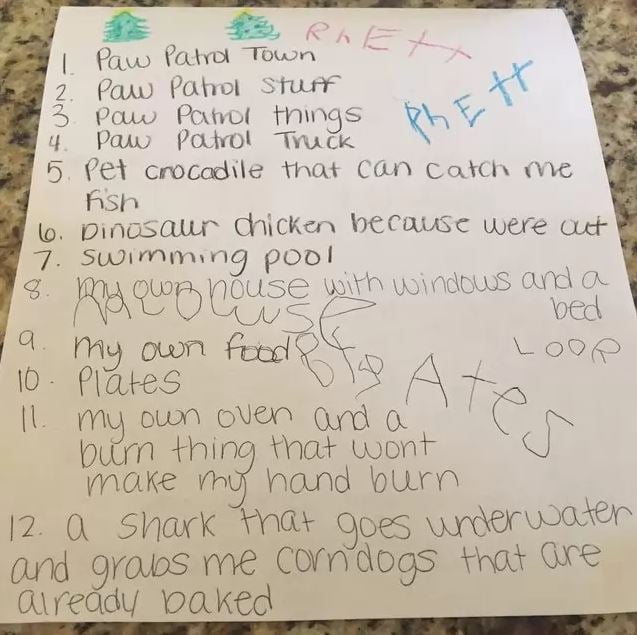 RhEtt
1. Paw Patrol Town
2. Paw Patrol stuff
3. Paw Patrol things
RhEtt
4. Paw Patrol Truck
5. Pet crocadile that can catch me
fish
6. Dinosaur chicken because were out
7. swimming pool
8. my own house with windows and a
bed
9. my own food
LOOP
10. Plates
AteS
11. my own oven and a
burn thing that wont
make my hand burn
12. a shark that goes underwater
and grabs me corndogs that are
already baked